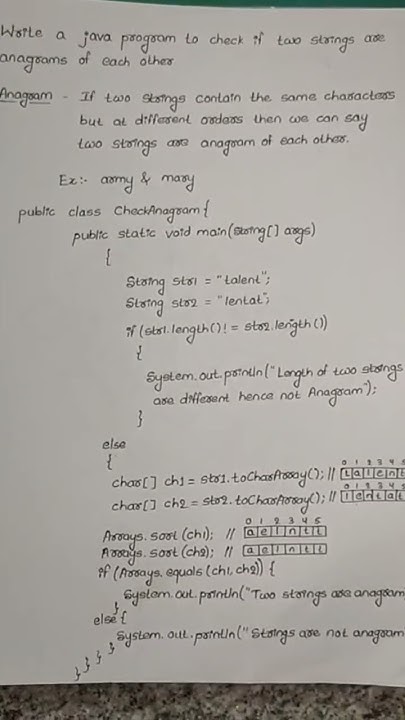 Write a java program to check if two strings are
anagrams of each other
Anagram - If two strings contain the same characters
but at different orders then we can say
two strings are anagram of each other.
Ex:- army & mary
public class CheckAnagram {
public static void main(String[] args)
{
String str1 = "talent";
String str2 = "lentat";
if (str1.length() != str2.length())
{
System.out.println("Length of two strings
are different hence not Anagram");
}
else
{
0 1 2 3 4 5
char[] ch1 = str1.toCharArray(); // t a l e n t
0 1 2 3 4 5
char[] ch2 = str2.toCharArray(); // l e n t a t
0 1 2 3 4 5
Arrays.sort(ch1); // a e l n t t
Arrays.sort(ch2); // a e l n t t
if (Arrays.equals(ch1, ch2)) {
System.out.println("Two strings are anagram
}
else {
System.out.println("Strings are not anagram
} } } }